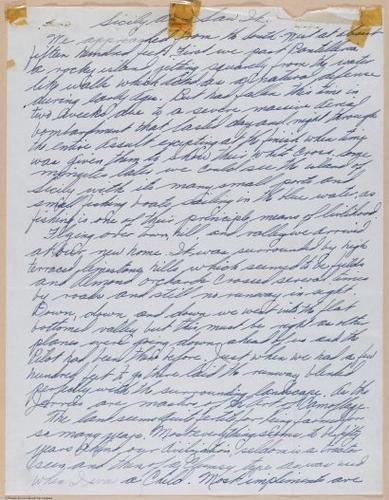 Sicily as I saw It.
We approached from the south west at about
fifteen hundred feet. First we past Pantelleria
a rocky island jutting squarely from the water
like walls which acted as a natural defense
during early days. But had fallen this time in
two weeks due to a severe massive aerial
bombardment that lasted day and night through
the entire assault excepting at the finish when time
was given them to show their white cross.
minutes later we could see the island of
Sicily with its many small ports and
small fishing boats sailing in the blue water, as
fishing is one of their principle means of livelihood.
Flying over town, hill and valley we arrived
at our new home. It was surrounded by high
terraced hills which seemed to be
and almond orchards crossed several times
by roads and still no runway in sight.
Down, down and down we went into the flat
bottomed valley but this must be right as other
planes were going down ahead of us and the
Pilot had been there before. Just when we had a few
hundred feet to go there laid the runway blended
perfectly with the surrounding landscape. As the
are masters of the art of Camouflage.
The land seems
so many years. Most everything seems to be fifty
years behind our civilization, seldom is a tractor
seen and then of a type as was used
when I was a Child. Most implements are